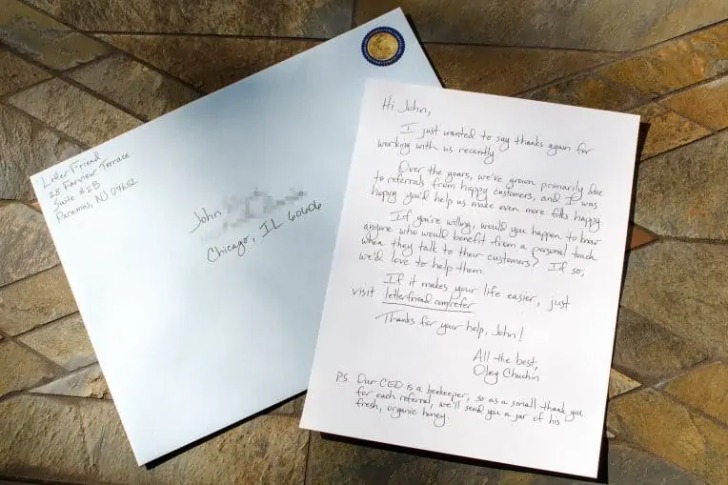 Letter Friend
28 Farview Terrace
Suite #2B
Paramus, NJ 07652
John
Chicago, IL 60606
Hi John,
I just wanted to say thanks again for
working with us recently
Over the years, we've grown primarily due
to referrals from happy customers, and I was
hoping you'd help us make even more folks happy
If you're willing, would you happen to know
anyone who would benefit from a personal touch
when they talk to their customers? If so,
we'd love to help them.
If it makes your life easier, just
visit letterfriend.com/refer
Thanks for your help, John!
All the best,
Oleg
P.S. Our CEO is a beekeeper, so as a small thank you
for each referral, we'll send you a jar of his
fresh, organic honey.